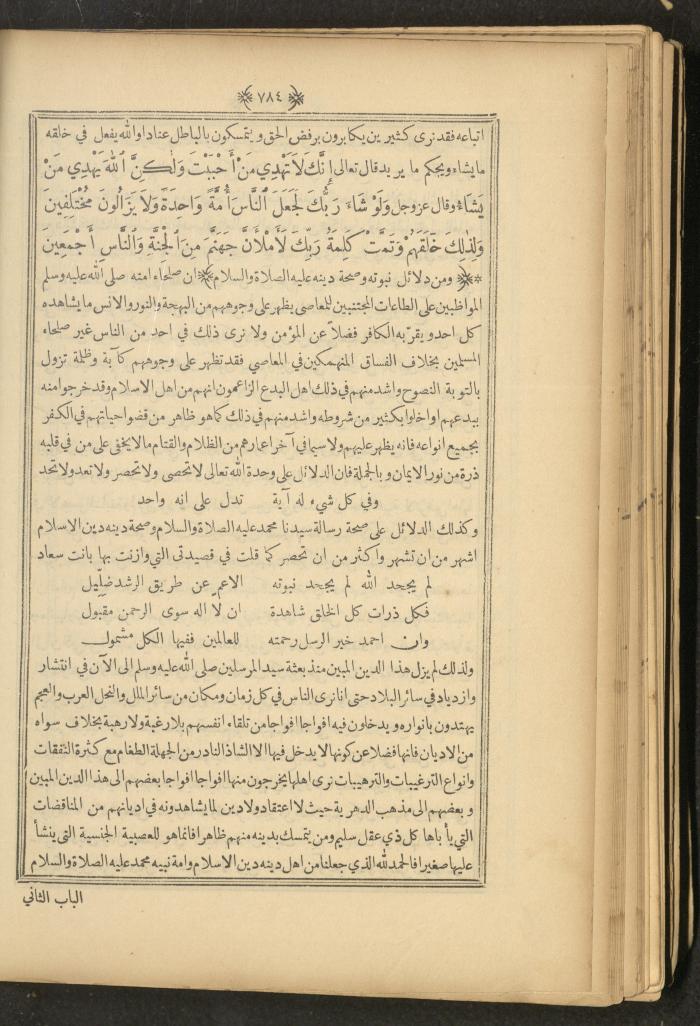 ﴿ ٧٨٤ ﴾
اتباعه فقد نرى كثيرين يكابرون برفض الحق ويتمسكون بالباطل عنادا والله يفعل في خلقه
ما يشاء ويحكم ما يريد قال تعالى إِنَّكَ لَا تَهْدِي مَنْ أَحْبَبْتَ وَلٰكِنَّ ٱللّٰهَ يَهْدِي مَنْ
يَشَاءُ وقال عز وجل وَلَوْ شَاءَ رَبُّكَ لَجَعَلَ ٱلنَّاسَ أُمَّةً وَاحِدَةً وَلَا يَزَالُونَ مُخْتَلِفِينَ
وَلِذٰلِكَ خَلَقَهُمْ وَتَمَّتْ كَلِمَةُ رَبِّكَ لَأَمْلَأَنَّ جَهَنَّمَ مِنَ ٱلْجِنَّةِ وَٱلنَّاسِ أَجْمَعِينَ
* ﴿ ومن دلائل نبوته وصحة دينه عليه الصلاة والسلام ﴾ ان صلحاء امته صلى الله عليه وسلم
المواظبين على الطاعات المجتنبين للمعاصي يظهر على وجوههم من البهجة والنور والانس ما يشاهده
كل احد ويقرّ به الكافر فضلاً عن المؤمن ولا نرى ذلك في احد من الناس غير صلحاء
المسلمين بخلاف الفساق المنهمكين في المعاصي فقد تظهر على وجوههم كآبة وظلمة تزول
بالتوبة النصوح واشد منهم في ذلك اهل البدع الزاعمون انهم من اهل الاسلام وقد خرجوا منه
ببدعهم او اخلوا بكثير من شروطه واشد منهم في ذلك كما هو ظاهر من قضوا حياتهم في الكفر
بجميع انواعه فانه يظهر عليهم ولا سيما في آخر اعمارهم من الظلام والقتام ما لا يخفى على من في قلبه
ذرة من نور الايمان وبالجملة فان الدلائل على وحدة الله تعالى لا تحصى ولا تحصر ولا تعد ولا تحد
وفي كل شيء له آية تدل على انه واحد
وكذلك الدلائل على صحة رسالة سيدنا محمد عليه الصلاة والسلام وصحة دينه دين الاسلام
اشهر من ان تشهر واكثر من ان تحصر كما قلت في قصيدتي التي وازنت بها بانت سعاد
لم يجحد الله لم يجحد نبوته الا عم عن طريق الرشد ضلّيل
فكل ذرات كل الخلق شاهدة ان لا اله سوى الرحمن مقبول
وان احمد خير الرسل رحمته للعالمين ففيها الكل مشمول
ولذلك لم يزل هذا الدين المبين منذ بعثة سيد المرسلين صلى الله عليه وسلم الى الآن في انتشار
وازدياد في سائر البلاد حتى انا نرى الناس في كل زمان ومكان من سائر الملل والنحل العرب والعجم
يهتدون بانواره ويدخلون فيه افواجا افواجا من تلقاء انفسهم بلا رغبة ولا رهبة بخلاف سواه
من الاديان فانها فضلا عن كونها لا يدخل فيها الا الشاذ النادر من الجهلة الطغام مع كثرة النفقات
وانواع الترغيبات والترهيبات نرى اهلها يخرجون منها افواجا افواجا بعضهم الى هذا الدين المبين
وبعضهم الى مذهب الدهرية حيث لا اعتقاد ولا دين لما يشاهدونه في اديانهم من المناقضات
التي يأباها كل ذي عقل سليم ومن يتمسك بدينه منهم ظاهرا فانما هو للعصبية الجنسية التي ينشأ
عليها صغيرا فالحمد لله الذي جعلنا من اهل دينه دين الاسلام وامة نبيه محمد عليه الصلاة والسلام
الباب الثاني